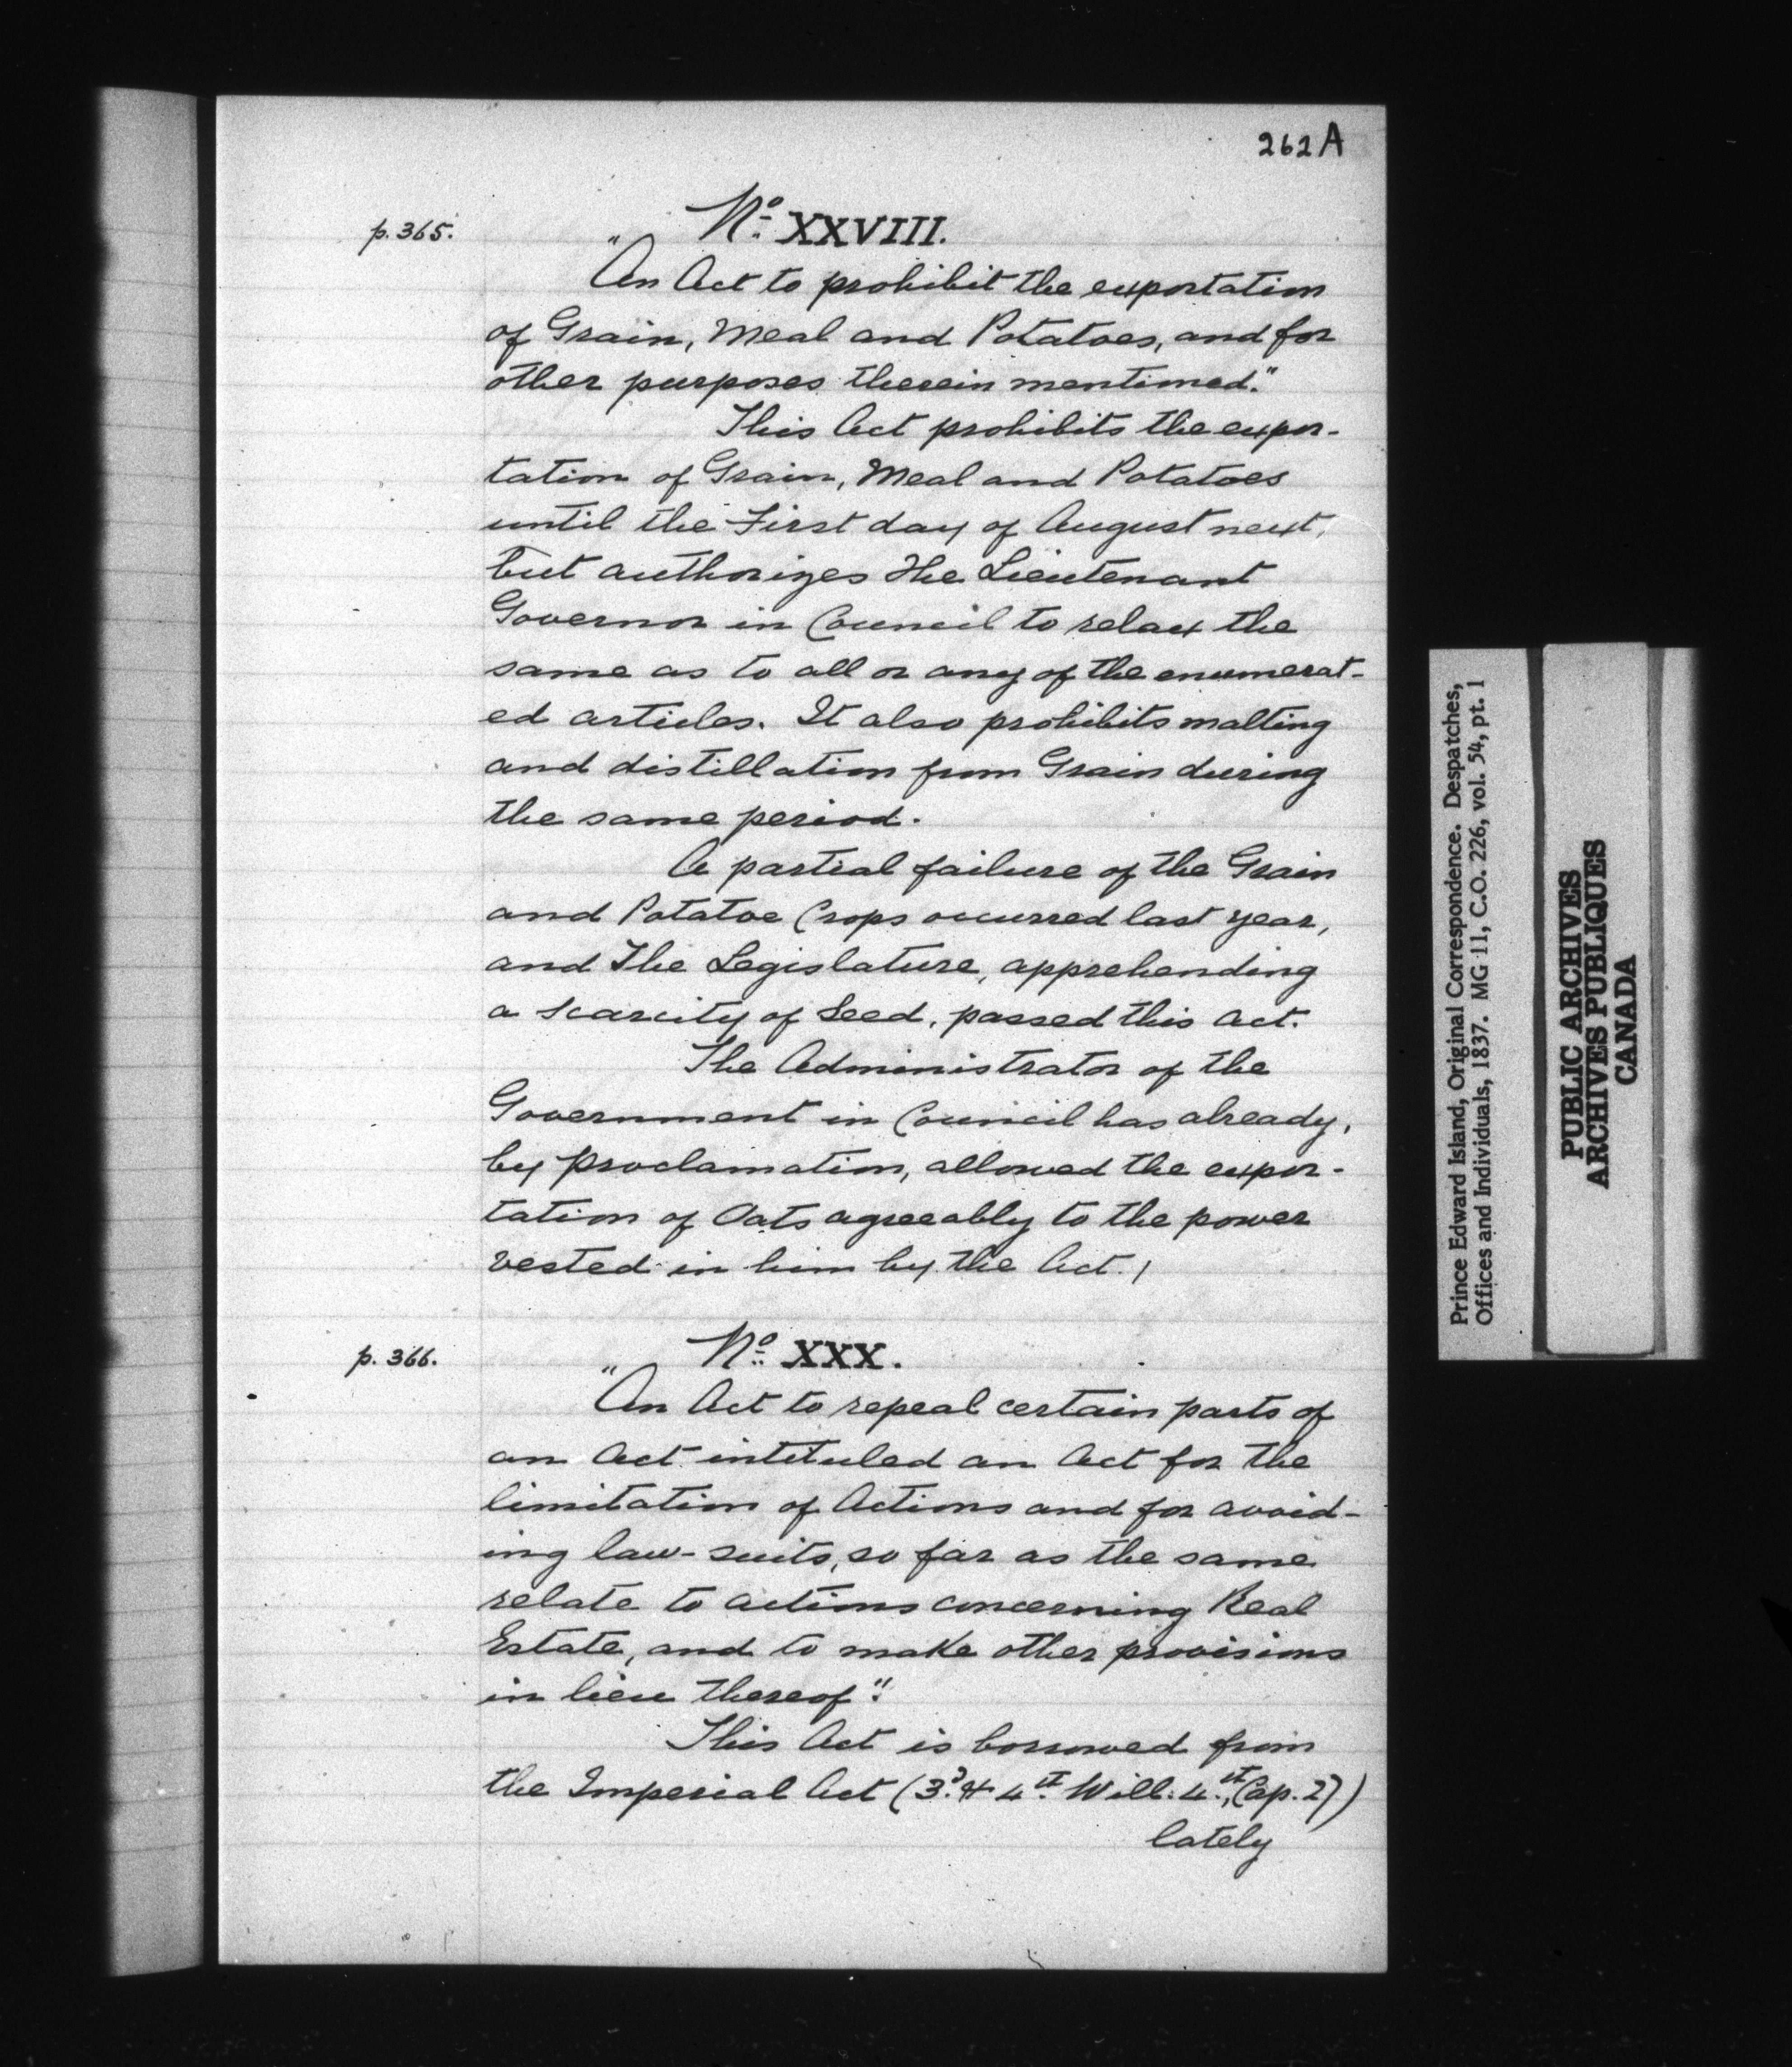 262A
p. 365.
No. XXVIII.
"An Act to prohibit the exportation
of Grain, Meal and Potatoes, and for
other purposes therein mentioned."
This Act prohibits the expor-
tation of Grain, Meal and Potatoes
until the First day of August next,
but authorizes The Lieutenant
Governor in Council to relax the
same as to all or any of the enumerat-
ed articles. It also prohibits malting
and distillation from Grain during
the same period.
A partial failure of the Grain
and Potatoe Crops occurred last year,
and The Legislature, apprehending
a scarcity of Seed, passed this Act.
The Administrator of the
Government in Council has already,
by proclamation, allowed the expor-
tation of Oats agreeably to the power
vested in him by the Act. /
p. 366.
No. XXX.
"An Act to repeal certain parts of
an Act intituled an Act for the
limitation of Actions and for avoid-
ing law-suits, so far as the same
relate to actions concerning Real
Estate, and to make other provisions
in lieu thereof".
This Act is borrowed from
the Imperial Act (3d. & 4th. Will: 4th., Cap. 27)
lately
Prince Edward Island, Original Correspondence. Despatches,
Offices and Individuals, 1837. MG 11, C.O. 226, vol. 54, pt. 1
PUBLIC ARCHIVES
ARCHIVES PUBLIQUES
CANADA